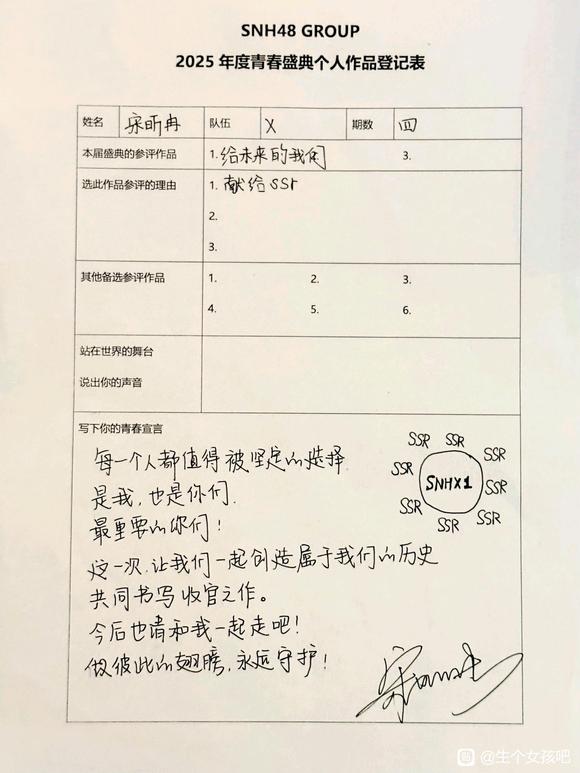 SNH48 GROUP
2025 年度青春盛典个人作品登记表
姓名 宋昕冉 队伍 X 期数 四
本届盛典的参评作品 1.给未来的我们 3.
选此作品参评的理由 1. 献给SSr
2.
3.
其他备选参评作品 1. 2. 3.
4. 5. 6.
站在世界的舞台
说出你的声音
写下你的青春宣言
每一个人都值得被坚定的选择
是我,也是你们.
最重要的你们!
这一次.让我们一起创造属于我们的历史
共同书写收官之作。
今后也请和我一起走吧!
做彼此的翅膀,永远守护!
SSR SSR
SSR SSR
SNHX1 SSR
SSR SSR SSR
@生个女孩吧